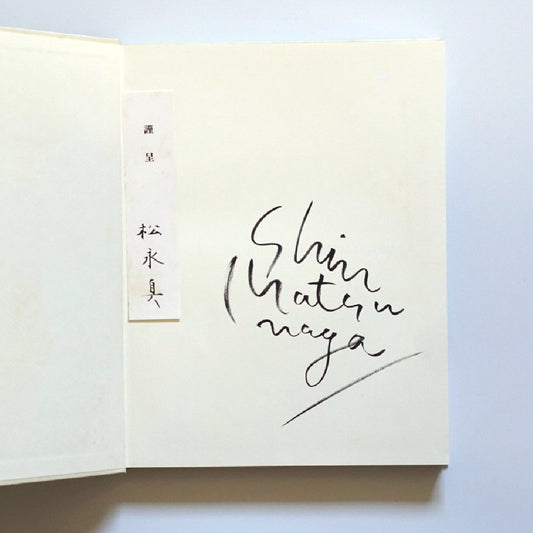 謹呈
松永真
Shin
Matsu
naga